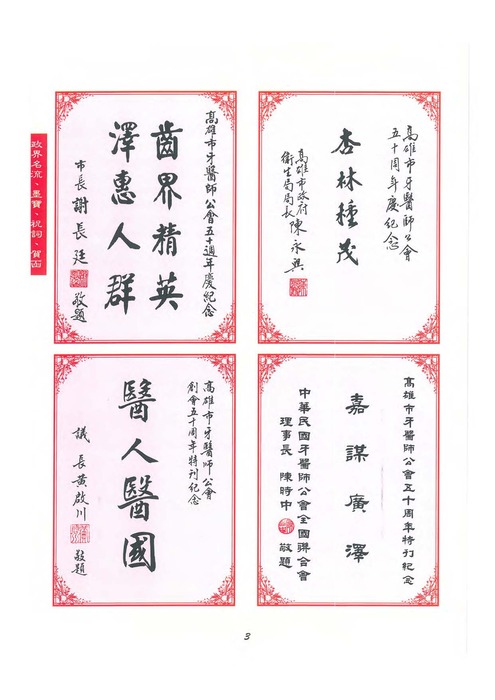 政界名流、墨寶、祝詞、賀函
高雄市牙醫師公會
五十周年慶紀念
杏林種茂
高雄市政府
衛生局局長 陳永興
高雄市牙醫師公會五十週年慶紀念
齒界精英
澤惠人群
市長 謝長廷 敬題
高雄市牙醫師公會五十周年特刊紀念
嘉謀廣澤
中華民國牙醫師公會全國聯合會
理事長 陳時中 敬題
高雄市牙醫師公會
創會五十周年特刊紀念
醫人醫國
議長 黃啟川 敬題
3